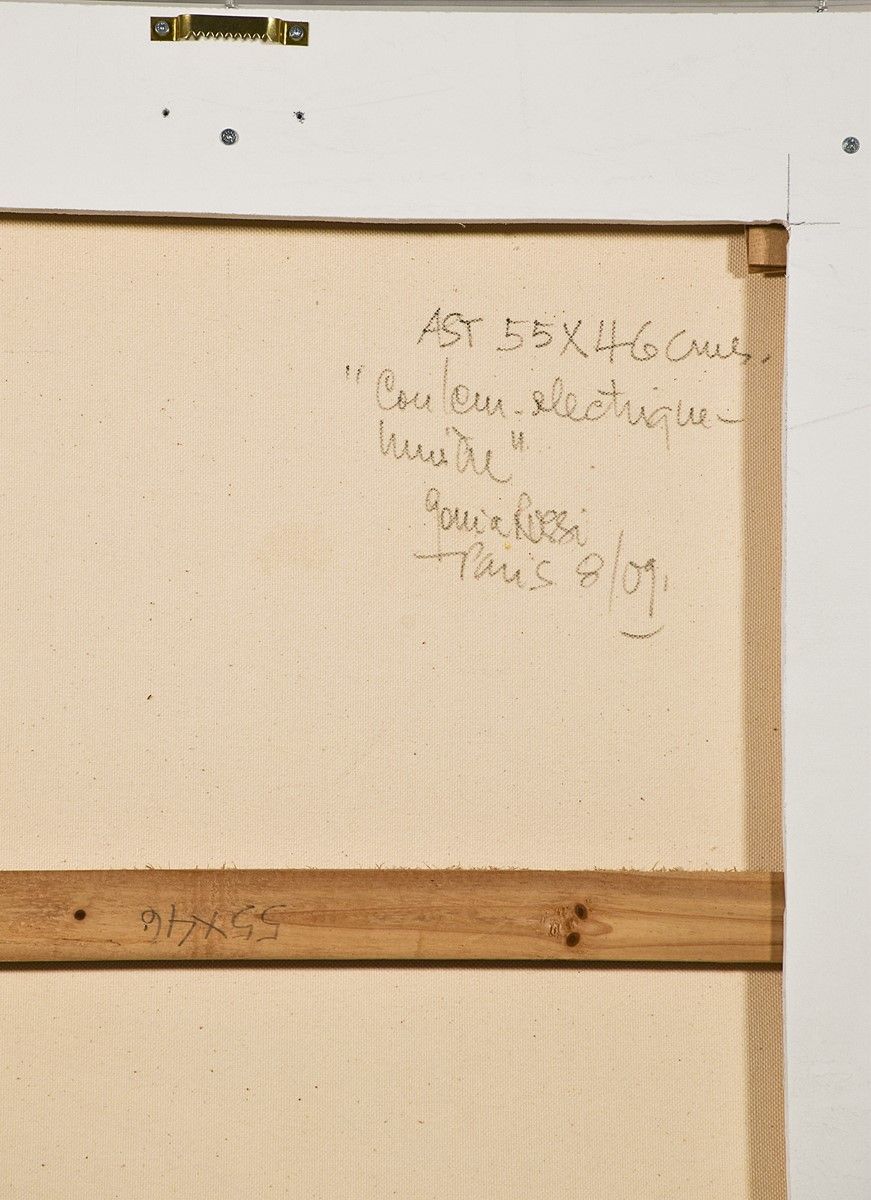 AST 55X46 cms.
"Couleur-electrique-
lumière"
Sonia Rossi
Paris 8/09.
55X46